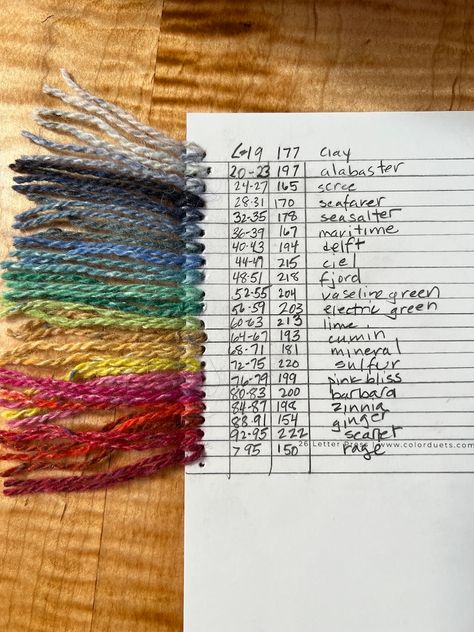 6-19 177 clay
20-23 197 alabaster
24-27 165 scree
28-31 170 seafarer
32-35 178 seasalter
36-39 167 maritime
40-43 194 delft
44-47 215 ciel
48-51 218 fjord
52-55 204 vaseline green
56-59 203 electric green
60-63 213 lime
64-67 193 cumin
68-71 181 mineral
72-75 220 sulfur
76-79 199 pink bliss
80-83 200 barbara
84-87 198 zinnia
88-91 154 ginger
92-95 222 scarlet
26 Letter Press | www.colorduets.com
>95 150 rage